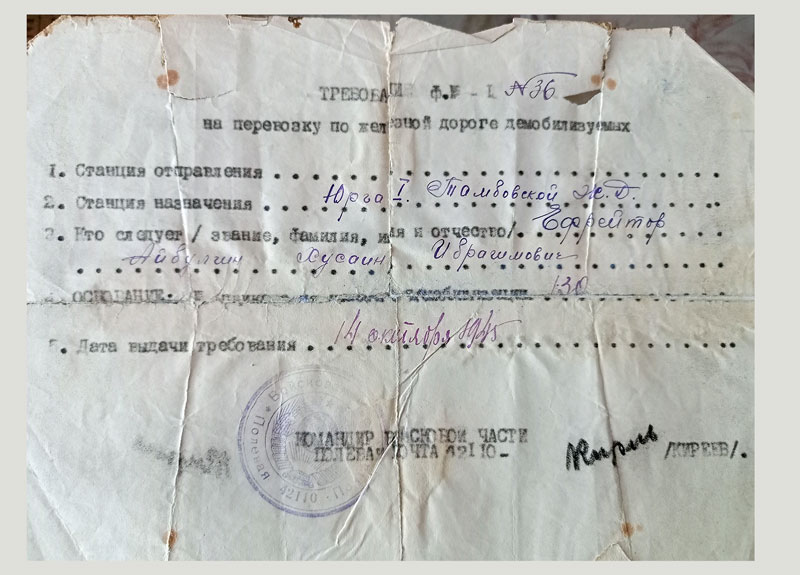 ТРЕБОВАНИЕ Ф.№ - 1 №36
на перевозку по железной дороге демобилизуемых
1. Станция отправления
2. Станция назначения Юрга I. Тамбовской Ж.Д.
3. Кто следует / звание, фамилия, имя и отчество/. Ефрейтор
Айбулгин Хусаин Ибрагимович
4. ОСНОВАНИЕ: демобилизации 130
5. Дата выдачи требования 14 октября 1945
КОМАНДИР ВОЙСКОВОЙ ЧАСТИ
ПОЛЕВАЯ ПОЧТА 42110- /КИРЕЕВ/.
Полевая 42110